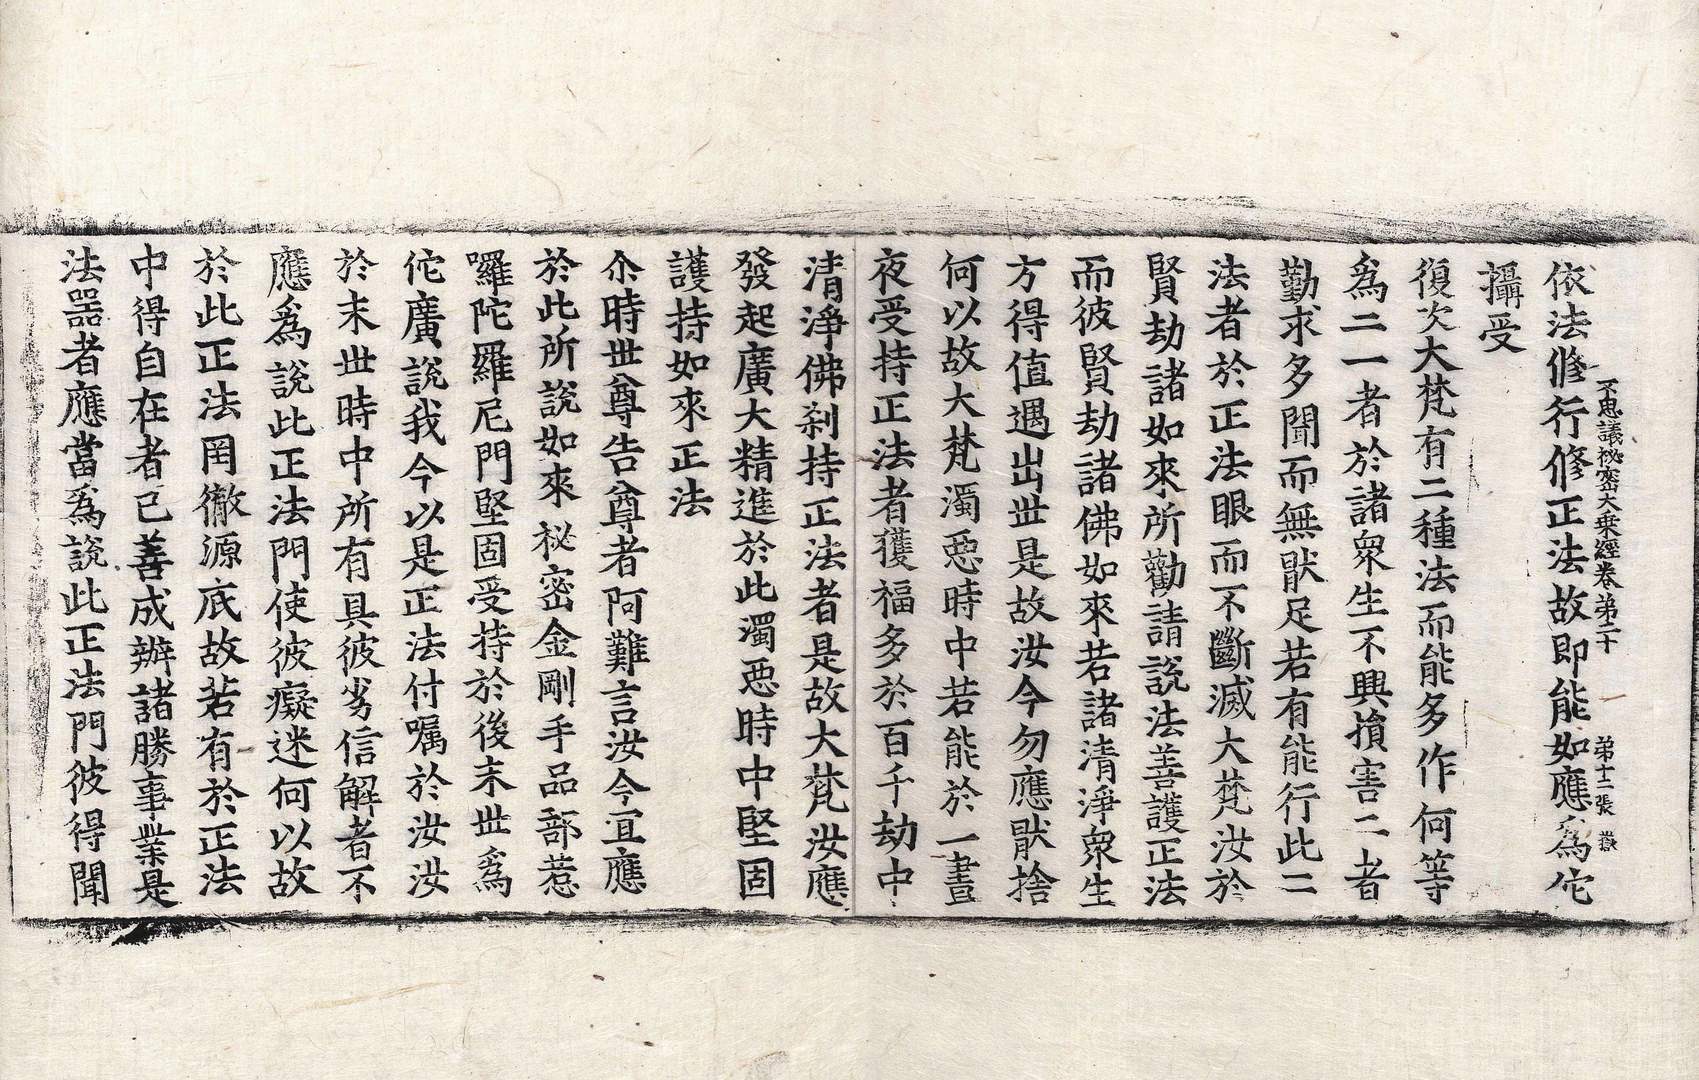 不思議秘密大乗經卷苐二十 苐十二張 嶽
依法修行修正法故即能如應爲佗
攝受
復次大梵有二種法而能多作何等
爲二一者於諸衆生不興損害二者
勤求多聞而無猒足若有能行此二
法者於正法眼而不斷滅大梵汝於
賢劫諸如來所勸請説法善護正法
而彼賢劫諸佛如來若諸清淨衆生
方得值遇出世是故汝今勿應猒捨
何以故大梵濁惡時中若能於一晝
夜受持正法者獲福多於百千劫中
清淨佛刹持正法者是故大梵汝應
發起廣大精進於此濁惡時中堅固
護持如來正法
尒時世尊告尊者阿難言汝今宜應
於此所說如來秘密金剛手品部惹
囉陀羅尼門堅固受持於後末世爲
佗廣說我今以是正法付囑於汝汝
於末世時中所有具彼劣信解者不
應爲說此正法門使彼癡迷何以故
於此正法罔徹源底故若有於正法
中得自在者已善成辦諸勝事業是
法器者應當爲說此正法門彼得聞